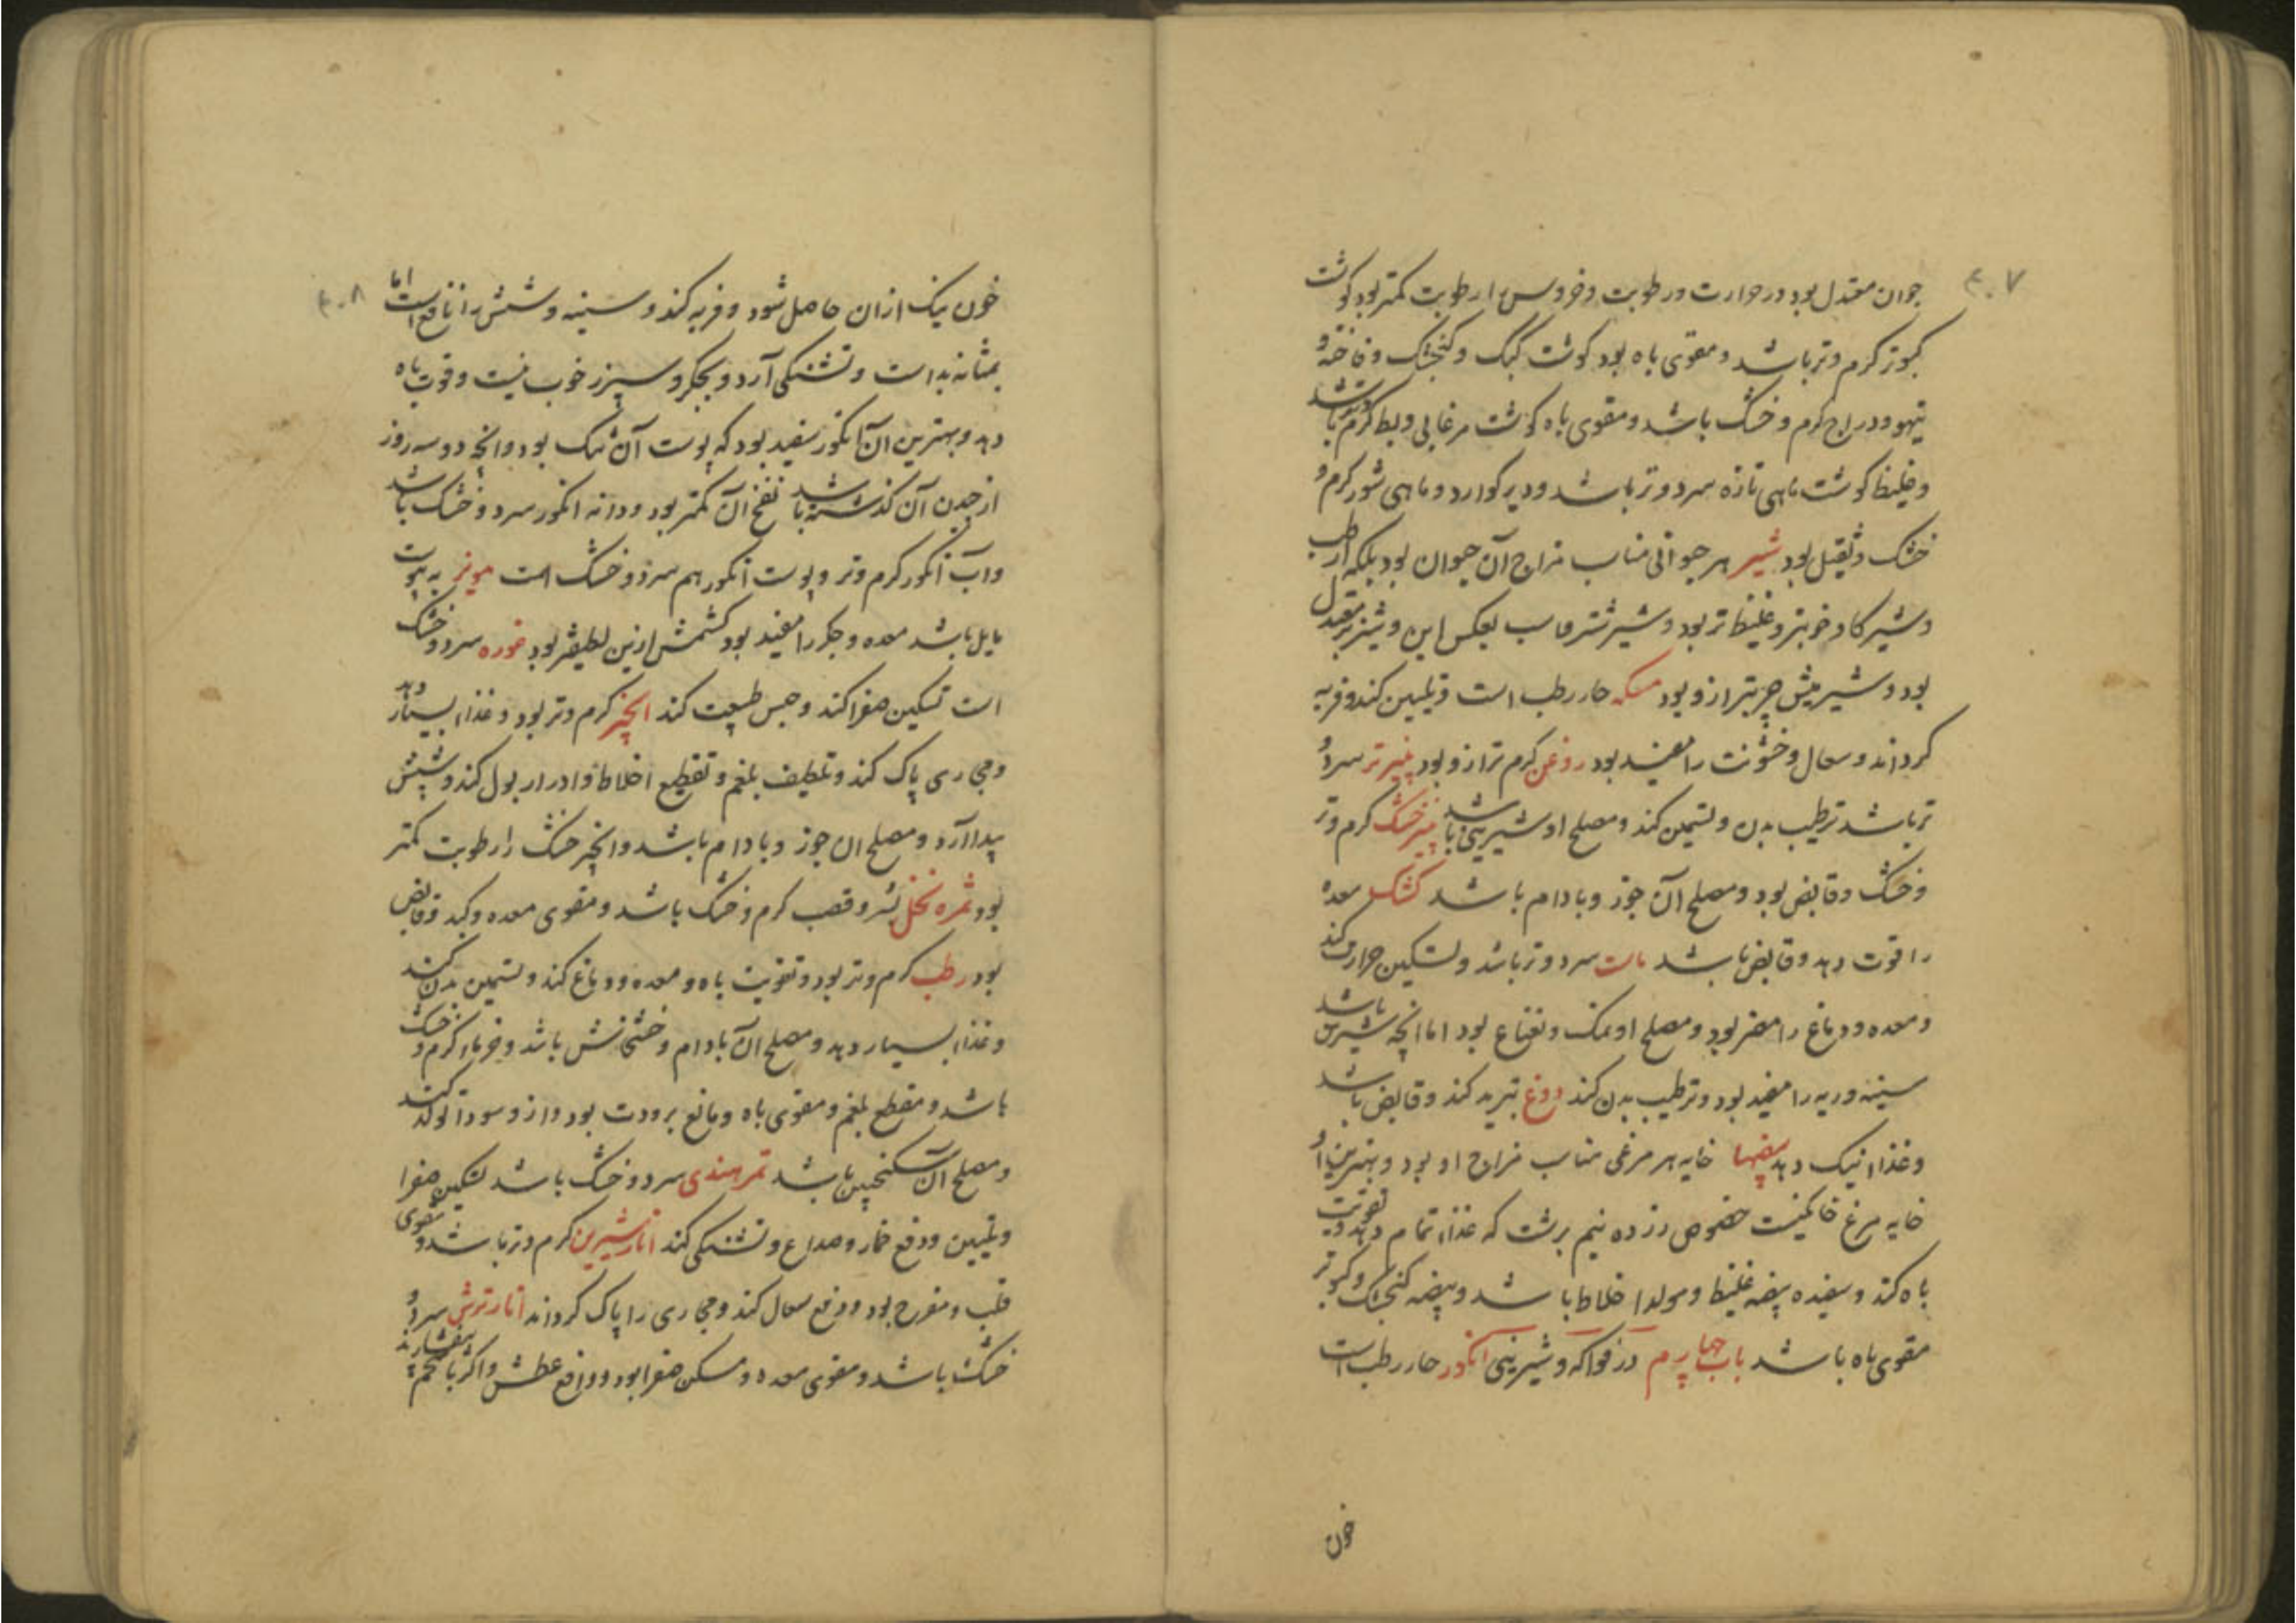 ۴۰۷
جوان معتدل بود در حرارت و رطوبت و خروس را رطوبت کمتر بود کوشت
کبوتر کرم و تر باشد و مقوی باه بود کوشت کبک و کنجشک و فاخته و
تیهو و دراج کرم و خشک باشد و مقوی باه کوشت مرغابی و بط کرم و تر باشد
و غلیظ کوشت ماهی تازه سرد و تر باشد و دیر کوارد و ماهی شور کرم و
خشک و ثقیل بود شیر هر حیوانی مناسب مزاج آن حیوان بود بلکه ارطب
و شیر کاو خوبتر و غلیظ تر بود و شیر شتر بعکس این و شیر بز معتدل
بود و شیر میش چربتر ازو بود مسکه حار رطب است و تلیین کند و فربه
کرداند و سعال و خشونت را مفید بود روغن کرم تر ازو بود پنیر تر سرد و
تر باشد ترطیب بدن و تسمین کند و مصلح او شیرینی باشد پنیر خشک کرم و تر
و خشک و قابض بود و مصلح آن جوز و بادام باشد کشک معده
را قوت دهد و قابض باشد ماست سرد و تر باشد و تسکین حرارت کند
و معده و دماغ را مضر بود و مصلح او نمک و نعناع بود اما انچه شیرین باشد
سینه و ریه را مفید بود و ترطیب بدن کند دوغ تبرید کند و قابض باشد
و غذاء نیک دهد بیضها خایه هر مرغی مناسب مزاج او بود و بهترین او
خایه مرغ خانکیست خصوص زرده نیم برشت که غذاء تمام دهد و تقویت
باه کند و سفیده بیضه غلیظ و مولد اخلاط باشد و بیضه کنجشک و کبوتر
مقوی باه باشد باب چهارم در فواکه و شیرینی انکور حار رطب است
خون
۴۰۸
خون نیک ازان حاصل شود و فربه کند و سینه و شش را نافع است اما
بمثانه بد است و تشنکی آرد و بجکر و سپرز خوب نیست و قوت باه
دهد و بهترین آن انکور سفید بود که پوست آن تنک بود و انچه دو سه روز
از چیدن آن کذشته باشد نفخ آن کمتر بود و دانه انکور سرد و خشک باشد
و آب انکور کرم و تر و پوست انکور هم سرد و خشک است مویز به یبوست
مایل باشد معده و جکر را مفید بود کشمش ازین لطیفتر بود غوره سرد و خشک
است تسکین صفرا کند و حبس طبیعت کند انجیر کرم و تر بود و غذاء بسیار دهد
و مجاری پاک کند و تلطیف بلغم و تقطیع اخلاط و ادرار بول کند و شپش
پیدا آرد و مصلح ان جوز و بادام باشد و انجیر خشک را رطوبت کمتر
بود ثمره نخل بسر و قصب کرم و خشک باشد و مقوی معده و کبد و قابض
بود رطب کرم و تر بود و تقویت باه و معده و دماغ کند و تسمین بدن کند
و غذاء بسیار دهد و مصلح آن بادام و خشخاش باشد و خرما کرم و خشک
باشد و مقطع بلغم و مقوی باه و مانع برودت بود و ازو سودا تولد کند
و مصلح آن سکنجبین باشد تمر هندی سرد و خشک باشد تسکین صفرا
و تلیین و دفع خمار و صداع و تشنکی کند انار شیرین کرم و تر باشد و مقوی
قلب و مفرح بود و دفع سعال کند و مجاری را پاک کرداند انار ترش سرد و
خشک باشد و مقوی معده و مسکن صفرا بود و دافع عطش و اکر با شحم بیفشارند